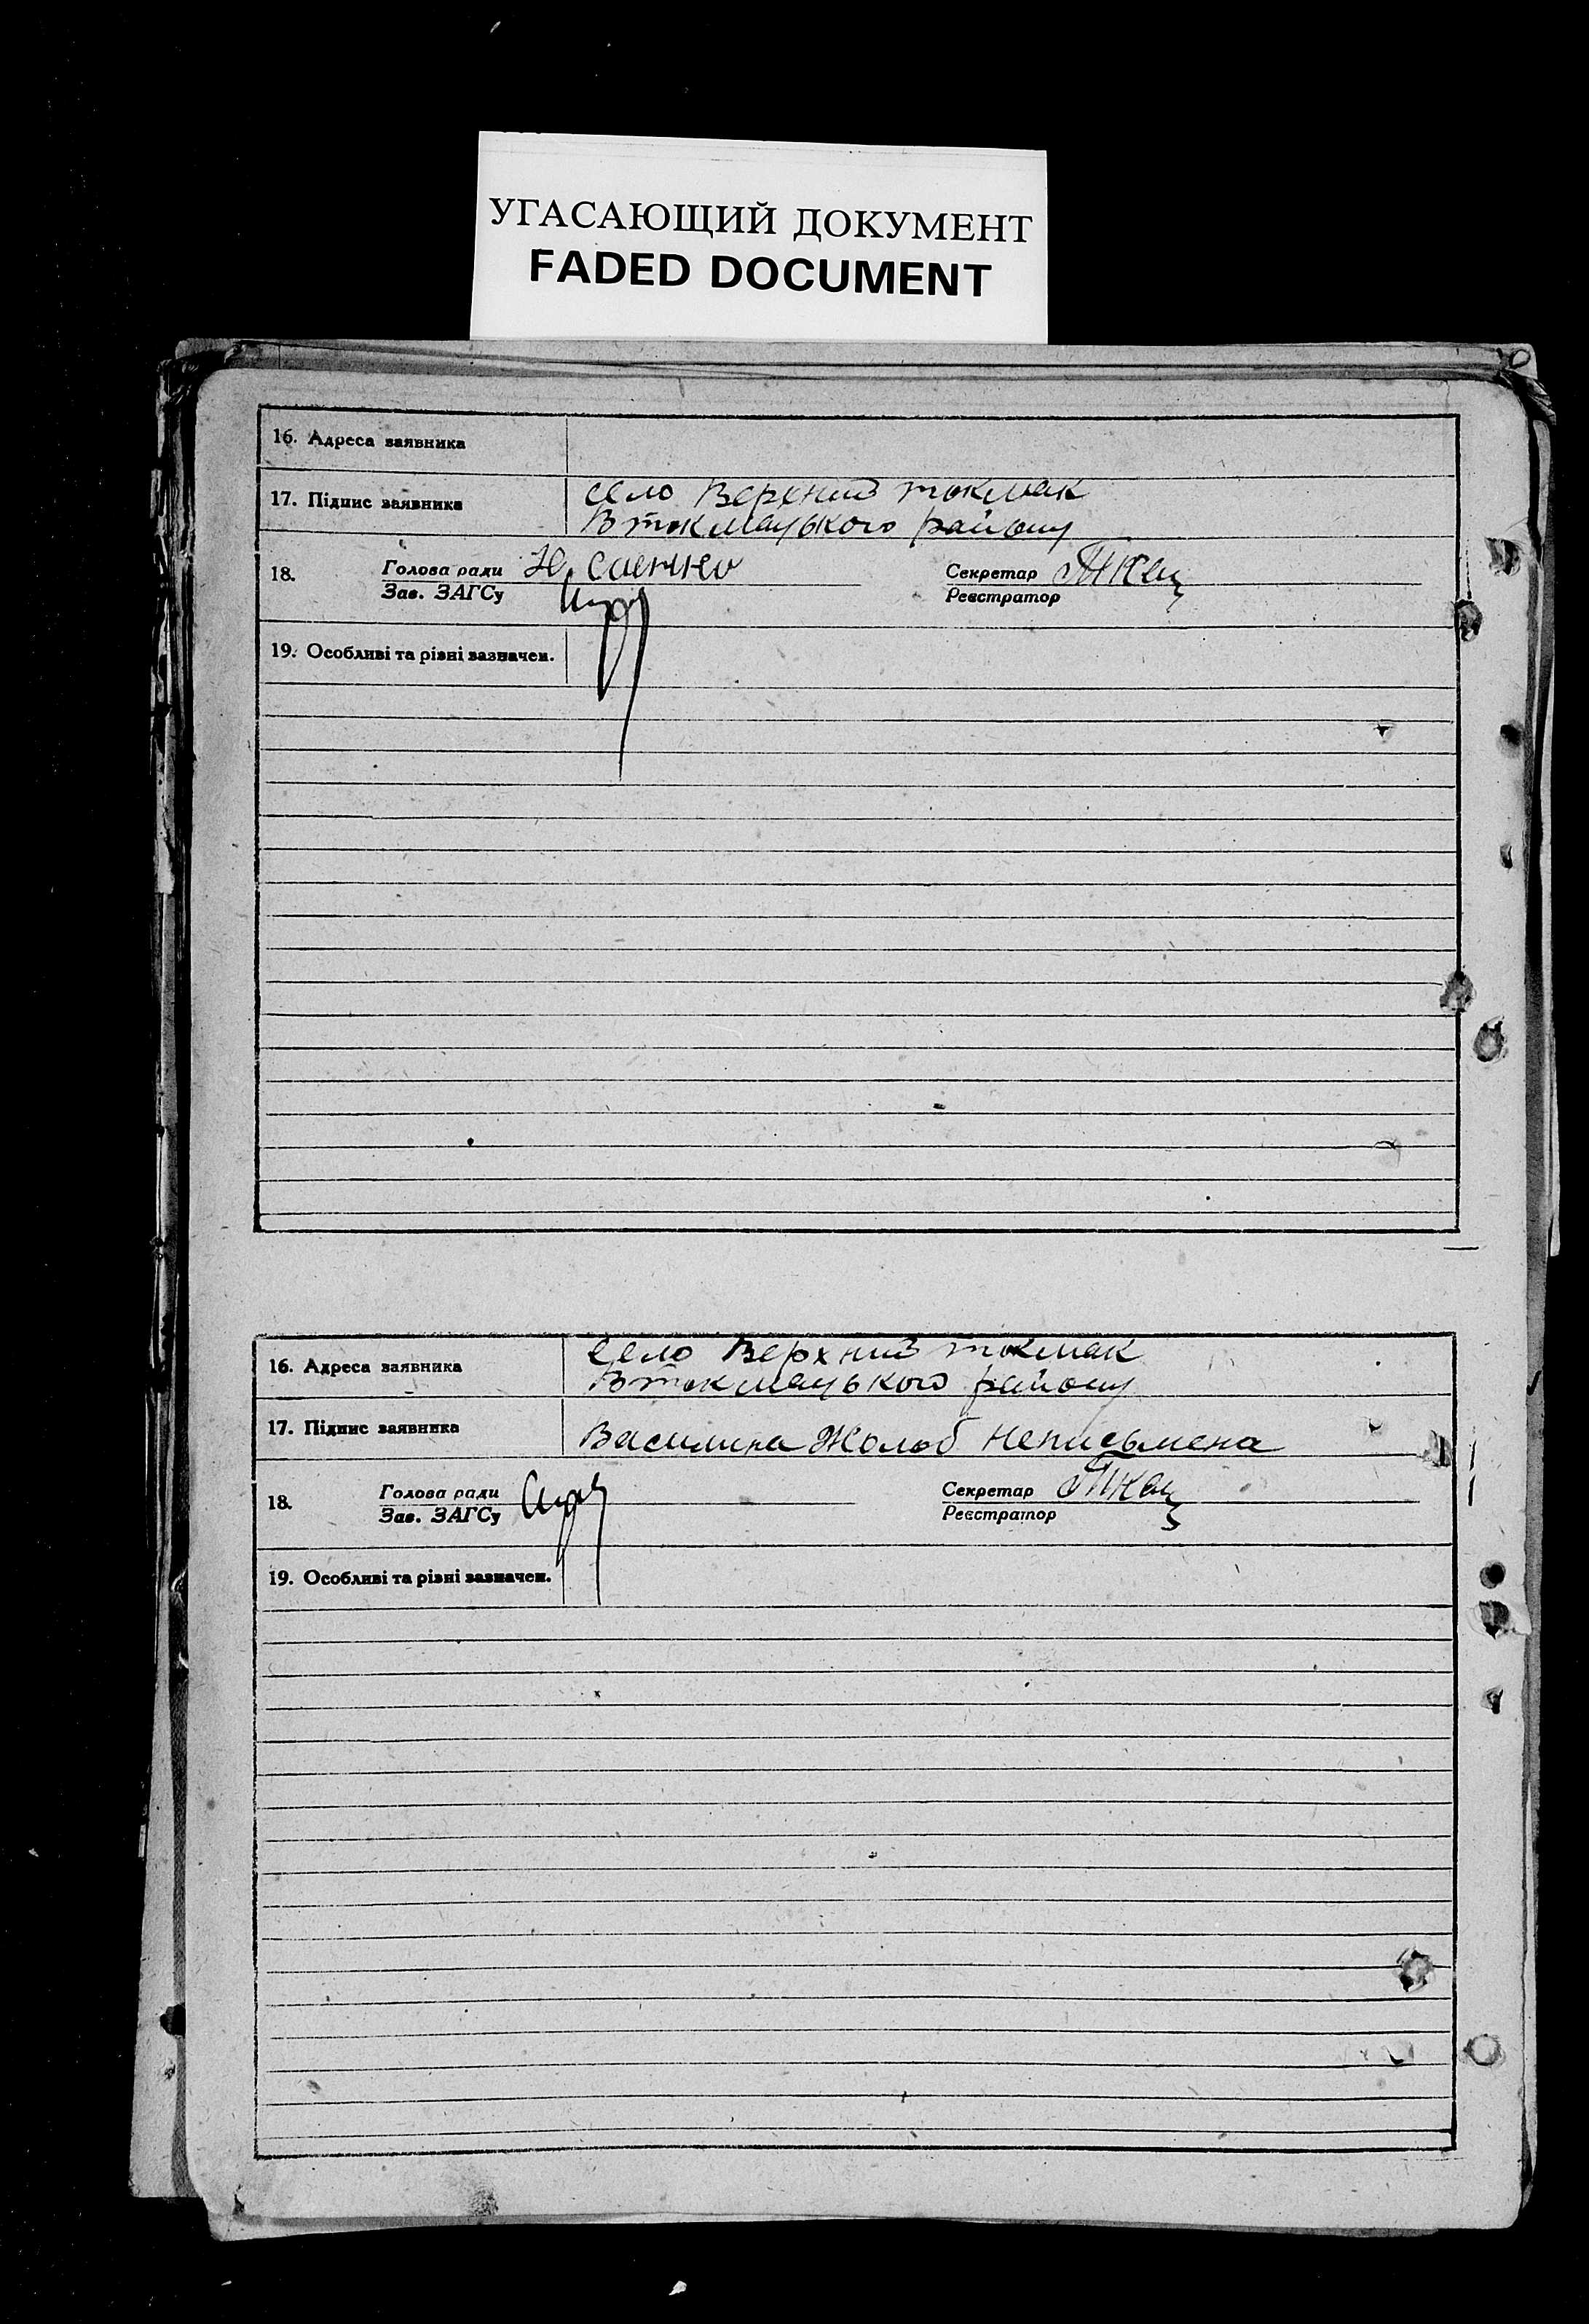 УГАСАЮЩИЙ ДОКУМЕНТ
FADED DOCUMENT
16. Адреса заявника
17. Підпис заявника
село Верхний токмак
Втокмацького району
18. Голова ради
Зав. ЗАГСу
Секретар Ткац
Реєстратор
19. Особливі та різні зазначен.
16. Адреса заявника
село Верхний токмак
Втокмацького району
17. Підпис заявника Василина Жолоб неписьмена
18. Голова ради
Зав. ЗАГСу
Секретар Ткац
Реєстратор
19. Особливі та різні зазначен.